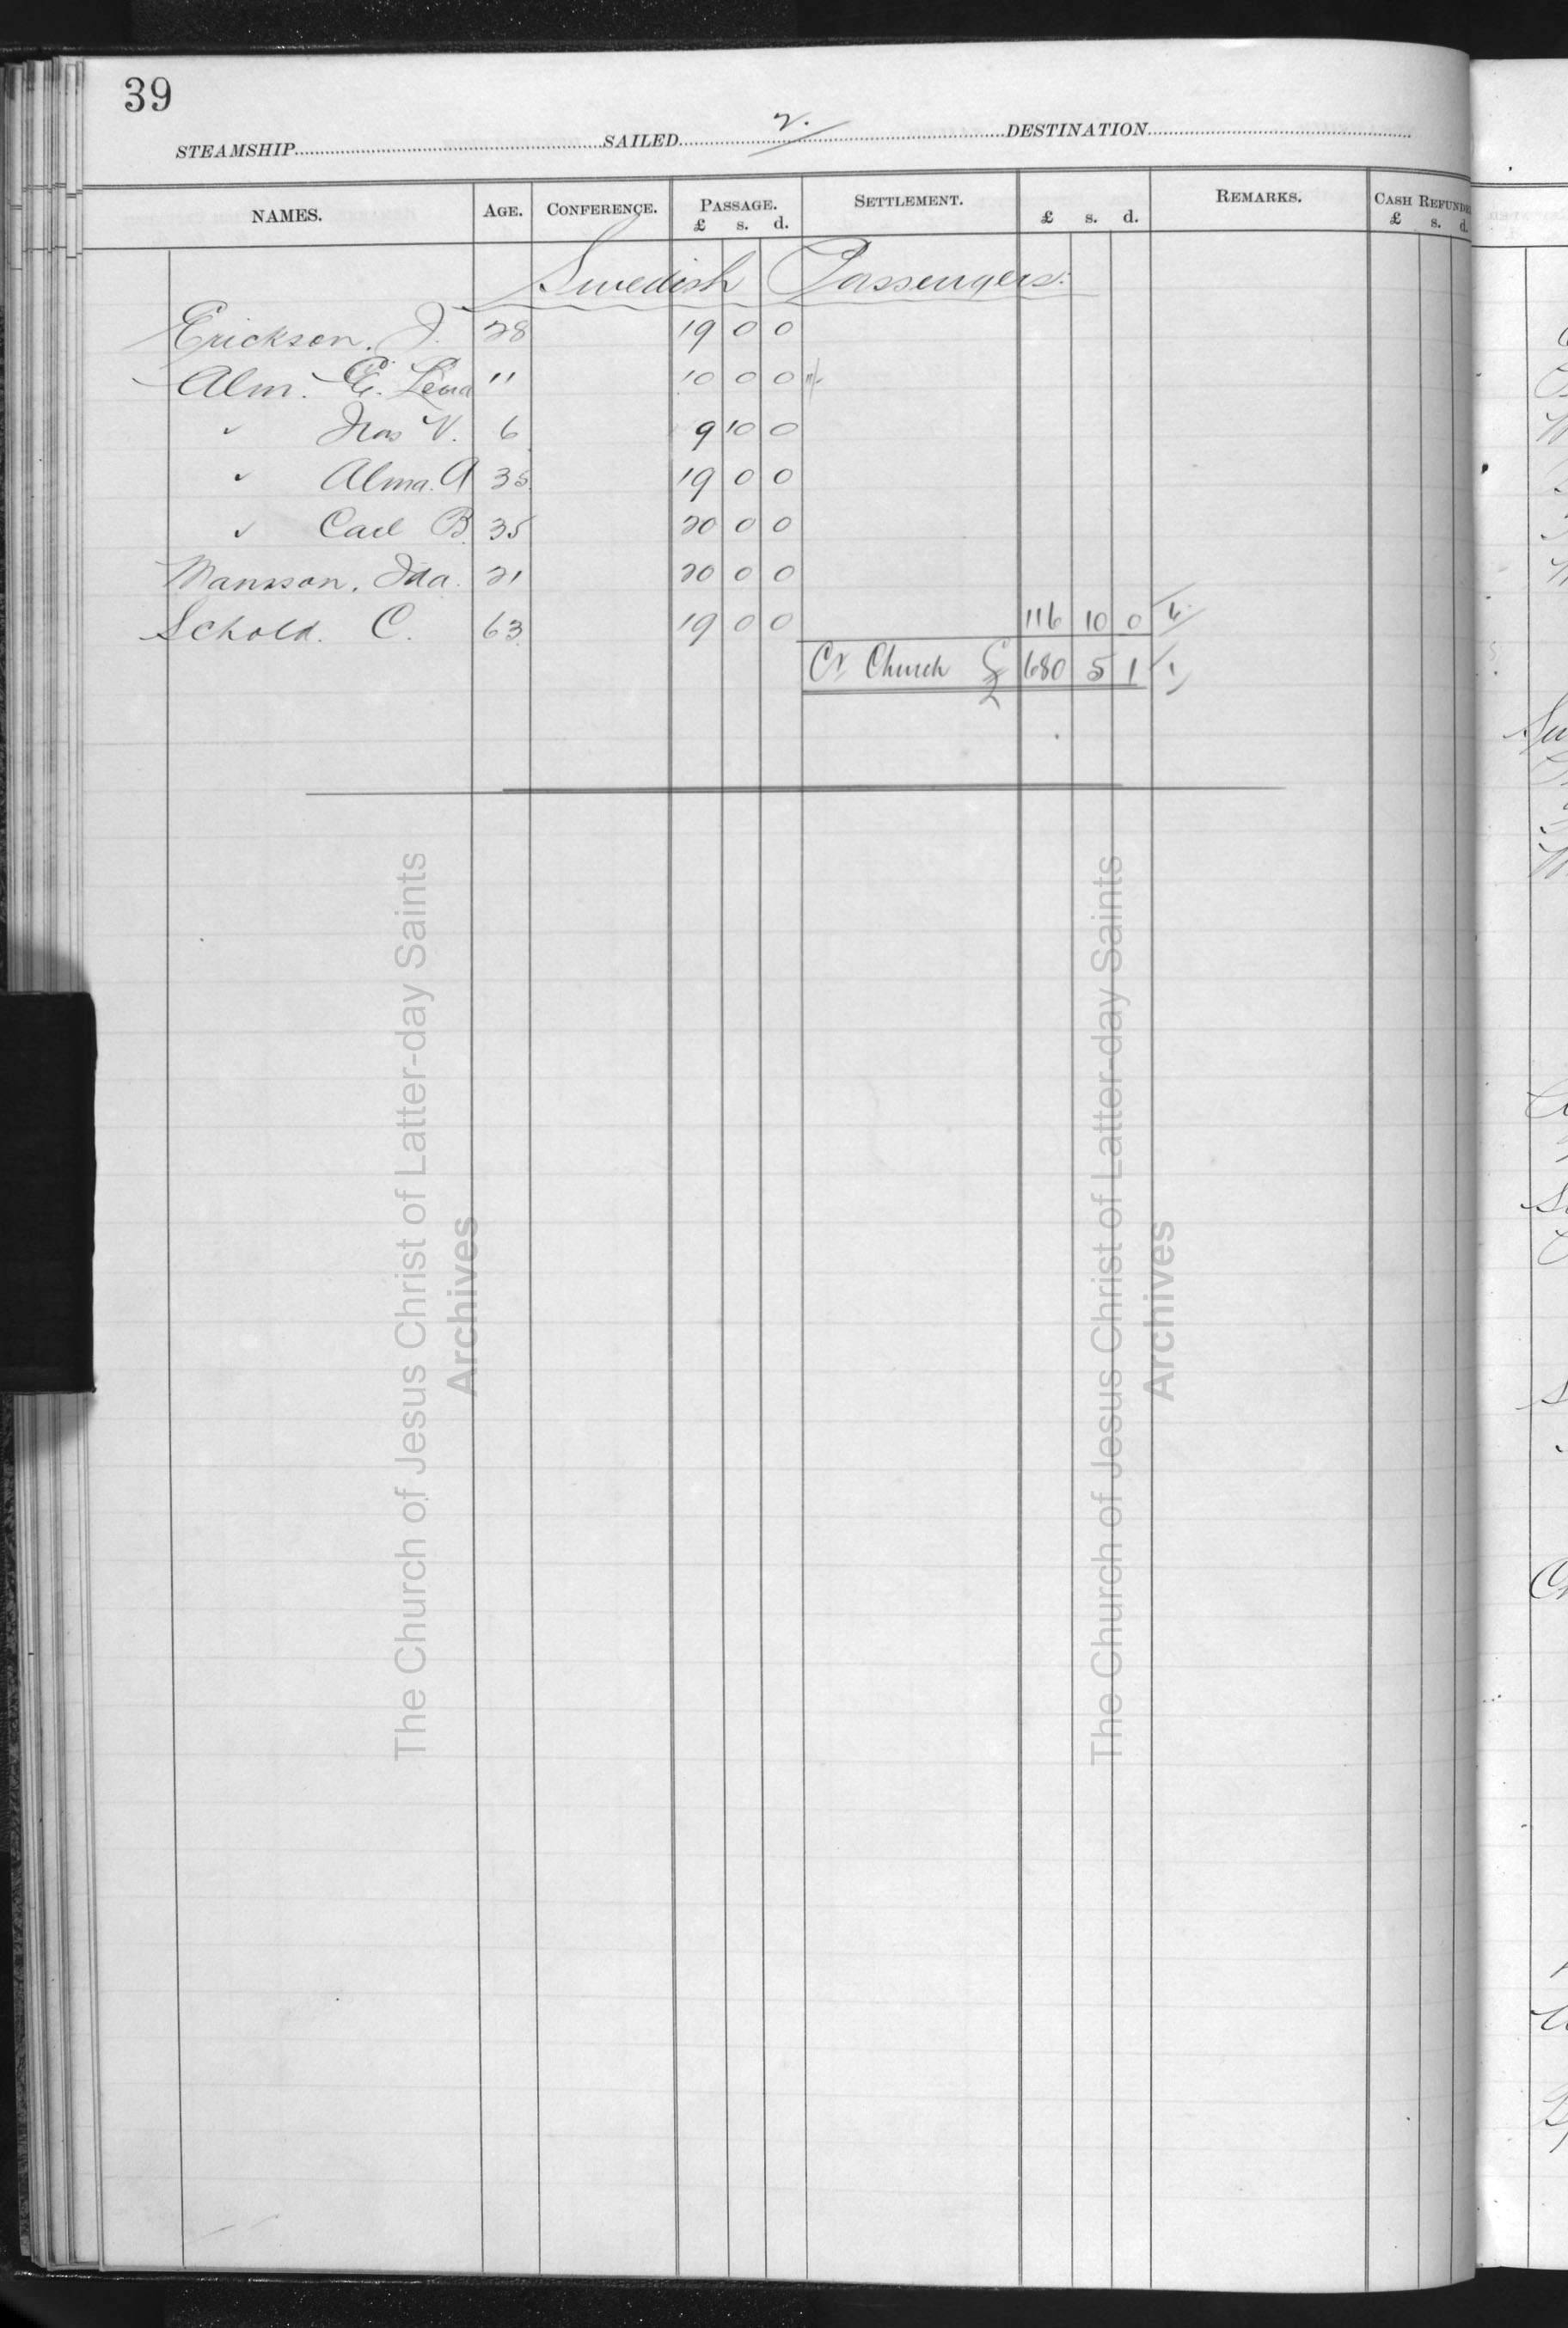 39
STEAMSHIP SAILED 2. DESTINATION
NAMES. AGE. CONFERENCE. PASSAGE. £ s. d. SETTLEMENT. £ s. d. REMARKS. CASH REFUNDE £ s. d.
Swedish Passengers.
Erickson. J. 28 19 0 0
Alm. E. Lena 11 10 0 0
" V. 6 9 10 0
" Alma. A 35 19 0 0
" Carl B. 35 20 0 0
Mansson. Ida. 21 20 0 0
Schold. C. 63 19 0 0 116 10 0
Cr Church 680 5 1
The Church of Jesus Christ of Latter-day Saints
Archives
The Church of Jesus Christ of Latter-day Saints
Archives